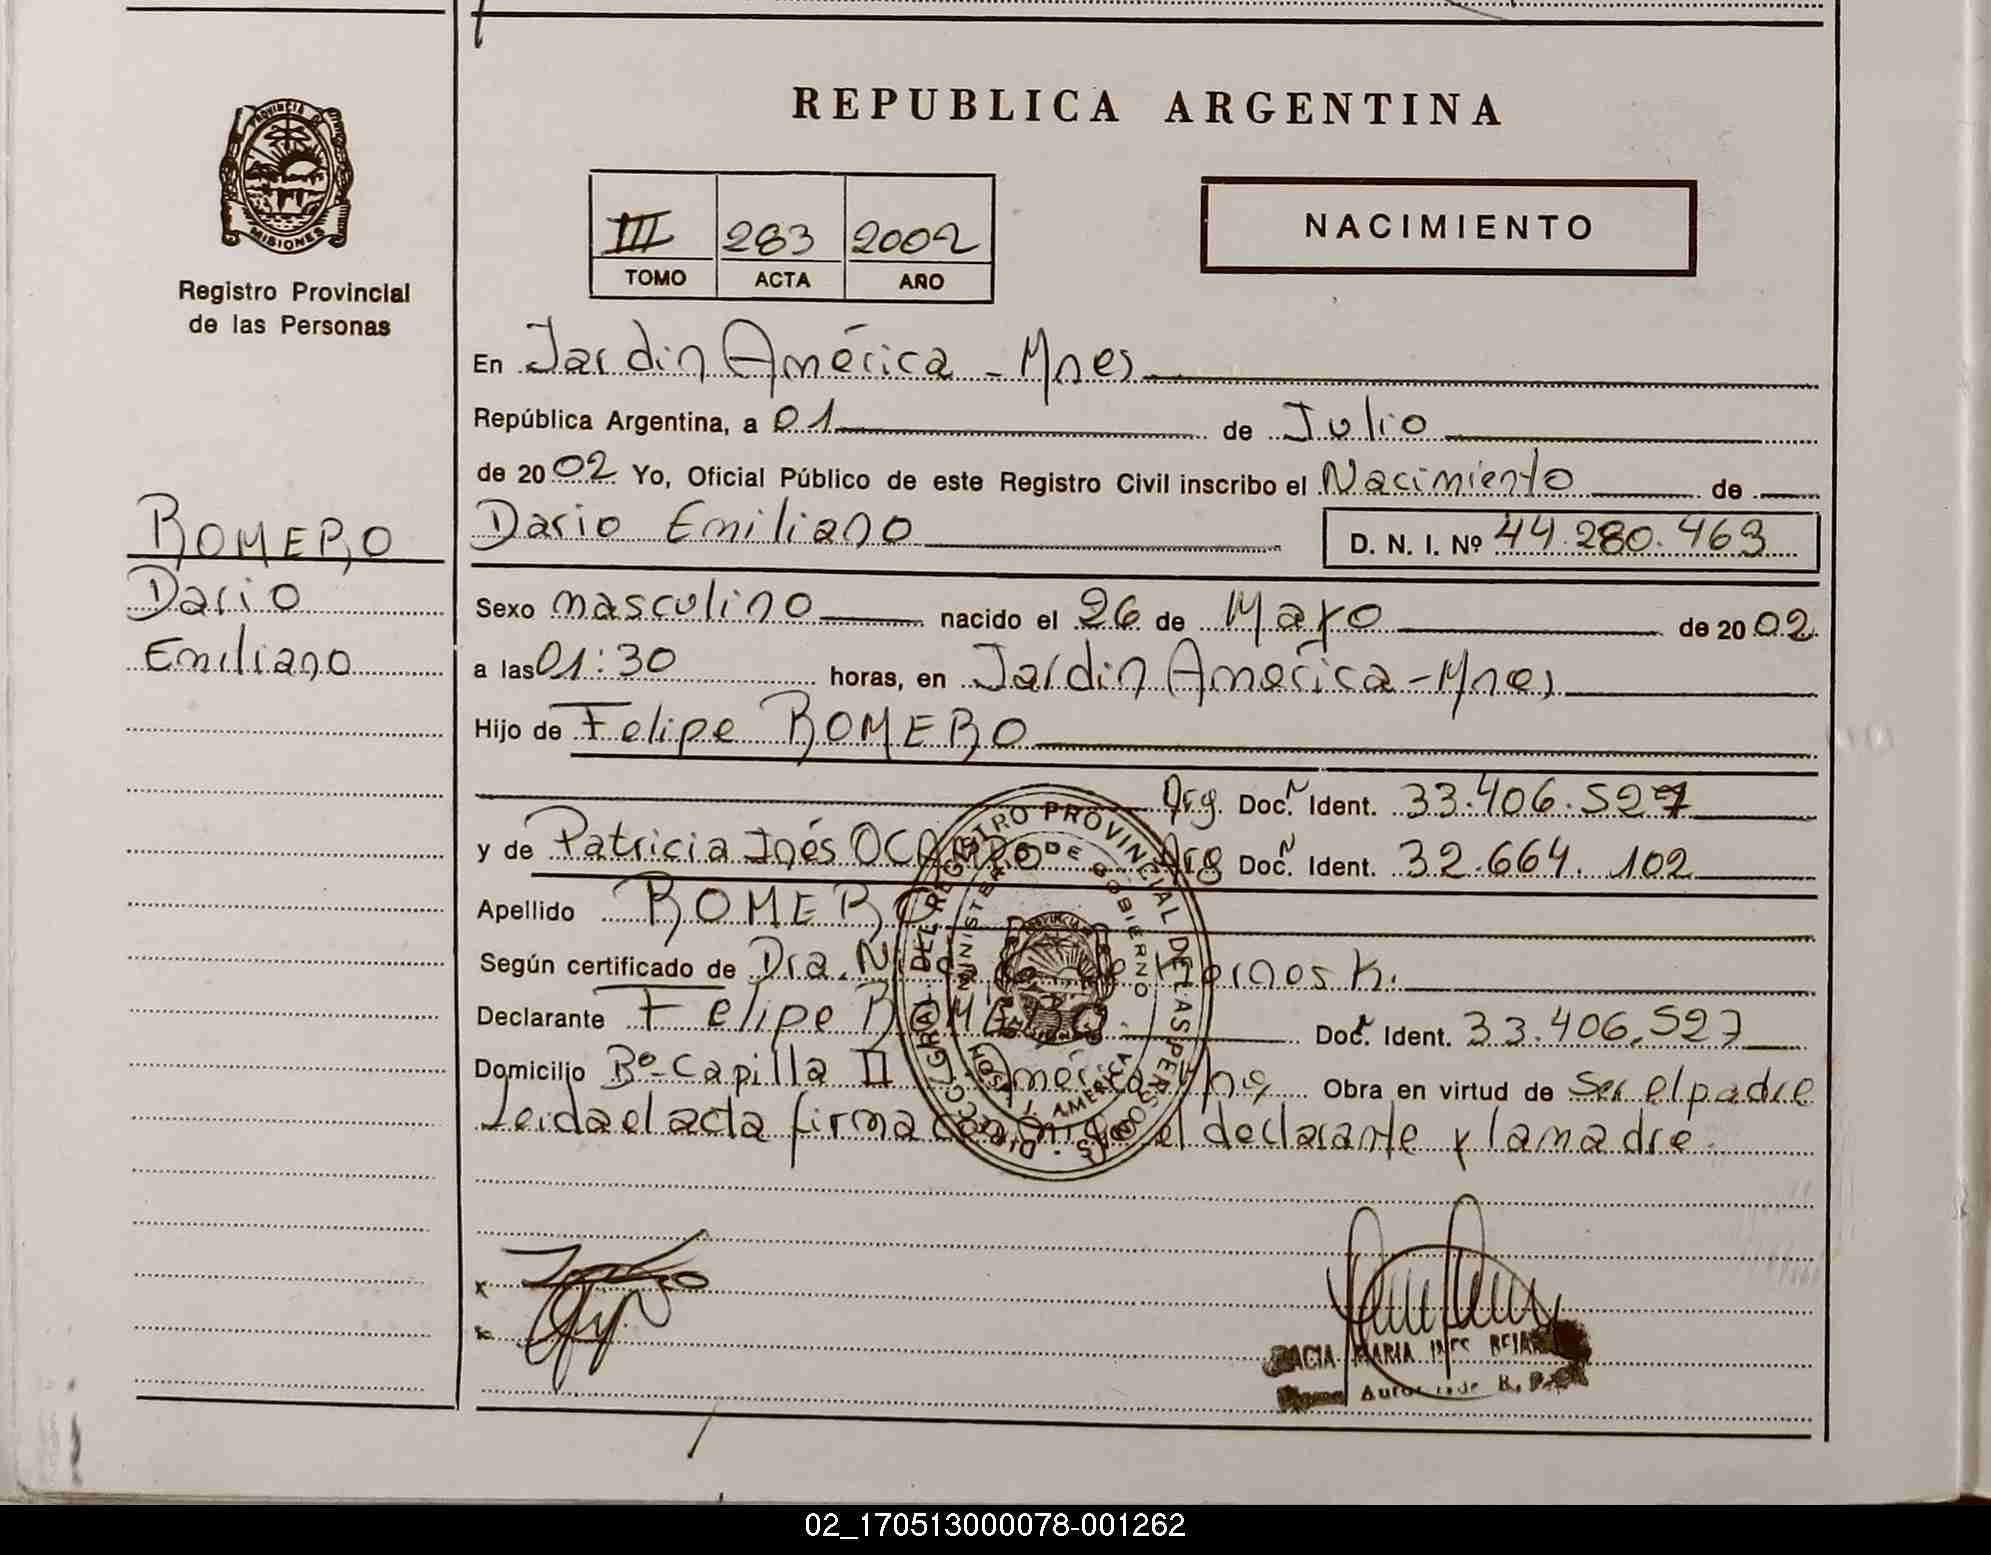 REPUBLICA ARGENTINA
PROVINCIA DE MISIONES
Registro Provincial
de las Personas
III 283 2002
TOMO ACTA AÑO
NACIMIENTO
En Jardin América - Mnes
República Argentina, a 01 de Julio
de 2002 Yo, Oficial Público de este Registro Civil inscribo el Nacimiento de
Dario Emiliano D. N. I. Nº 44.280.463
ROMERO
Dario
Emiliano
Sexo masculino nacido el 26 de Mayo de 2002
a las 01:30 horas, en Jardin América - Mnes
Hijo de Felipe ROMERO
Arg. Doc. N Ident. 33.406.527
y de Patricia Inés OCAMPO Arg Doc. N Ident. 32.664.102
Apellido ROMERO
Según certificado de Dra. K.
Declarante Felipe ROMERO Doc. Ident. 33.406.527
Domicilio Bº Capilla II América Obra en virtud de Ser el padre
Leida el acta firma conmigo el declarante y la madre.
DIRECC. GRAL. DEL REGISTRO PROVINCIAL DE LAS PERSONAS
MINISTERIO DE GOBIERNO
AMERICA
MARIA INES
02_170513000078-001262